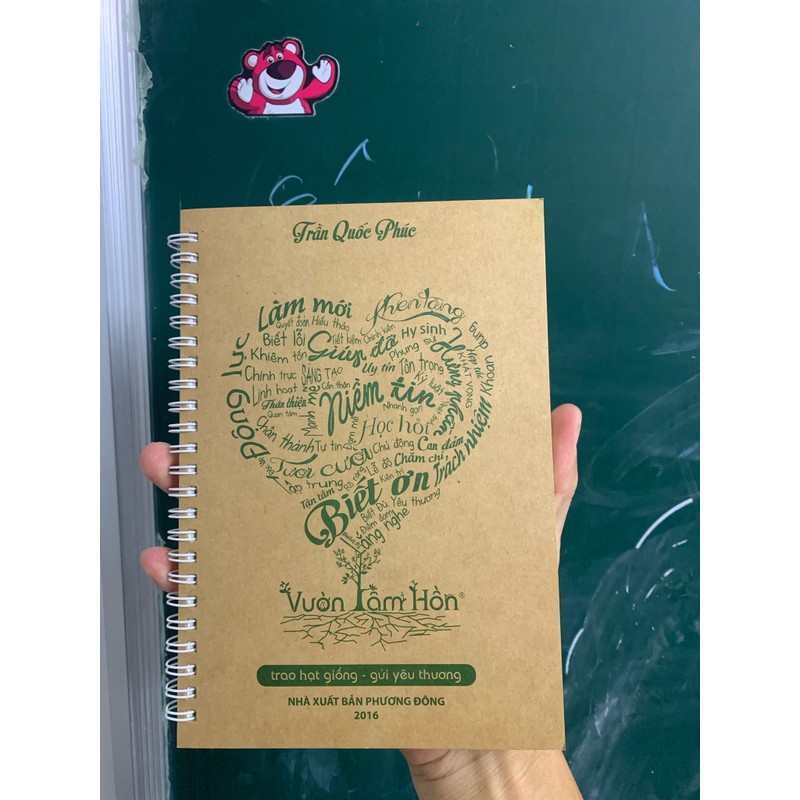 Trần Quốc Phúc
Làm mới
Khen tặng
Quyết đoán Hiếu thảo
Biết lỗi
Tiết kiệm Chính kiến
Hy sinh
Khiêm tốn
Giúp đỡ
Phụng sự
Động lực
Chính trực
SÁNG TẠO
Uy tín
Tôn trọng
KHÁT VỌNG
Linh hoạt
Cẩn thận
Kỷ luật
Thân thiện
Niềm tin
Quan tâm
Nhanh gọn
Chân thành
Tự tin
Học hỏi
Tươi cười
Chủ động
Can đảm
Tập trung
Rõ ràng
Lễ độ
Chăm chỉ
Tận tâm
Kiên trì
Trách nhiệm
Biết ơn
Biết Đủ
Yêu thương
Điềm đạm
Lắng nghe
Vườn Tâm Hồn®
trao hạt giống - gửi yêu thương
NHÀ XUẤT BẢN PHƯƠNG ĐÔNG
2016